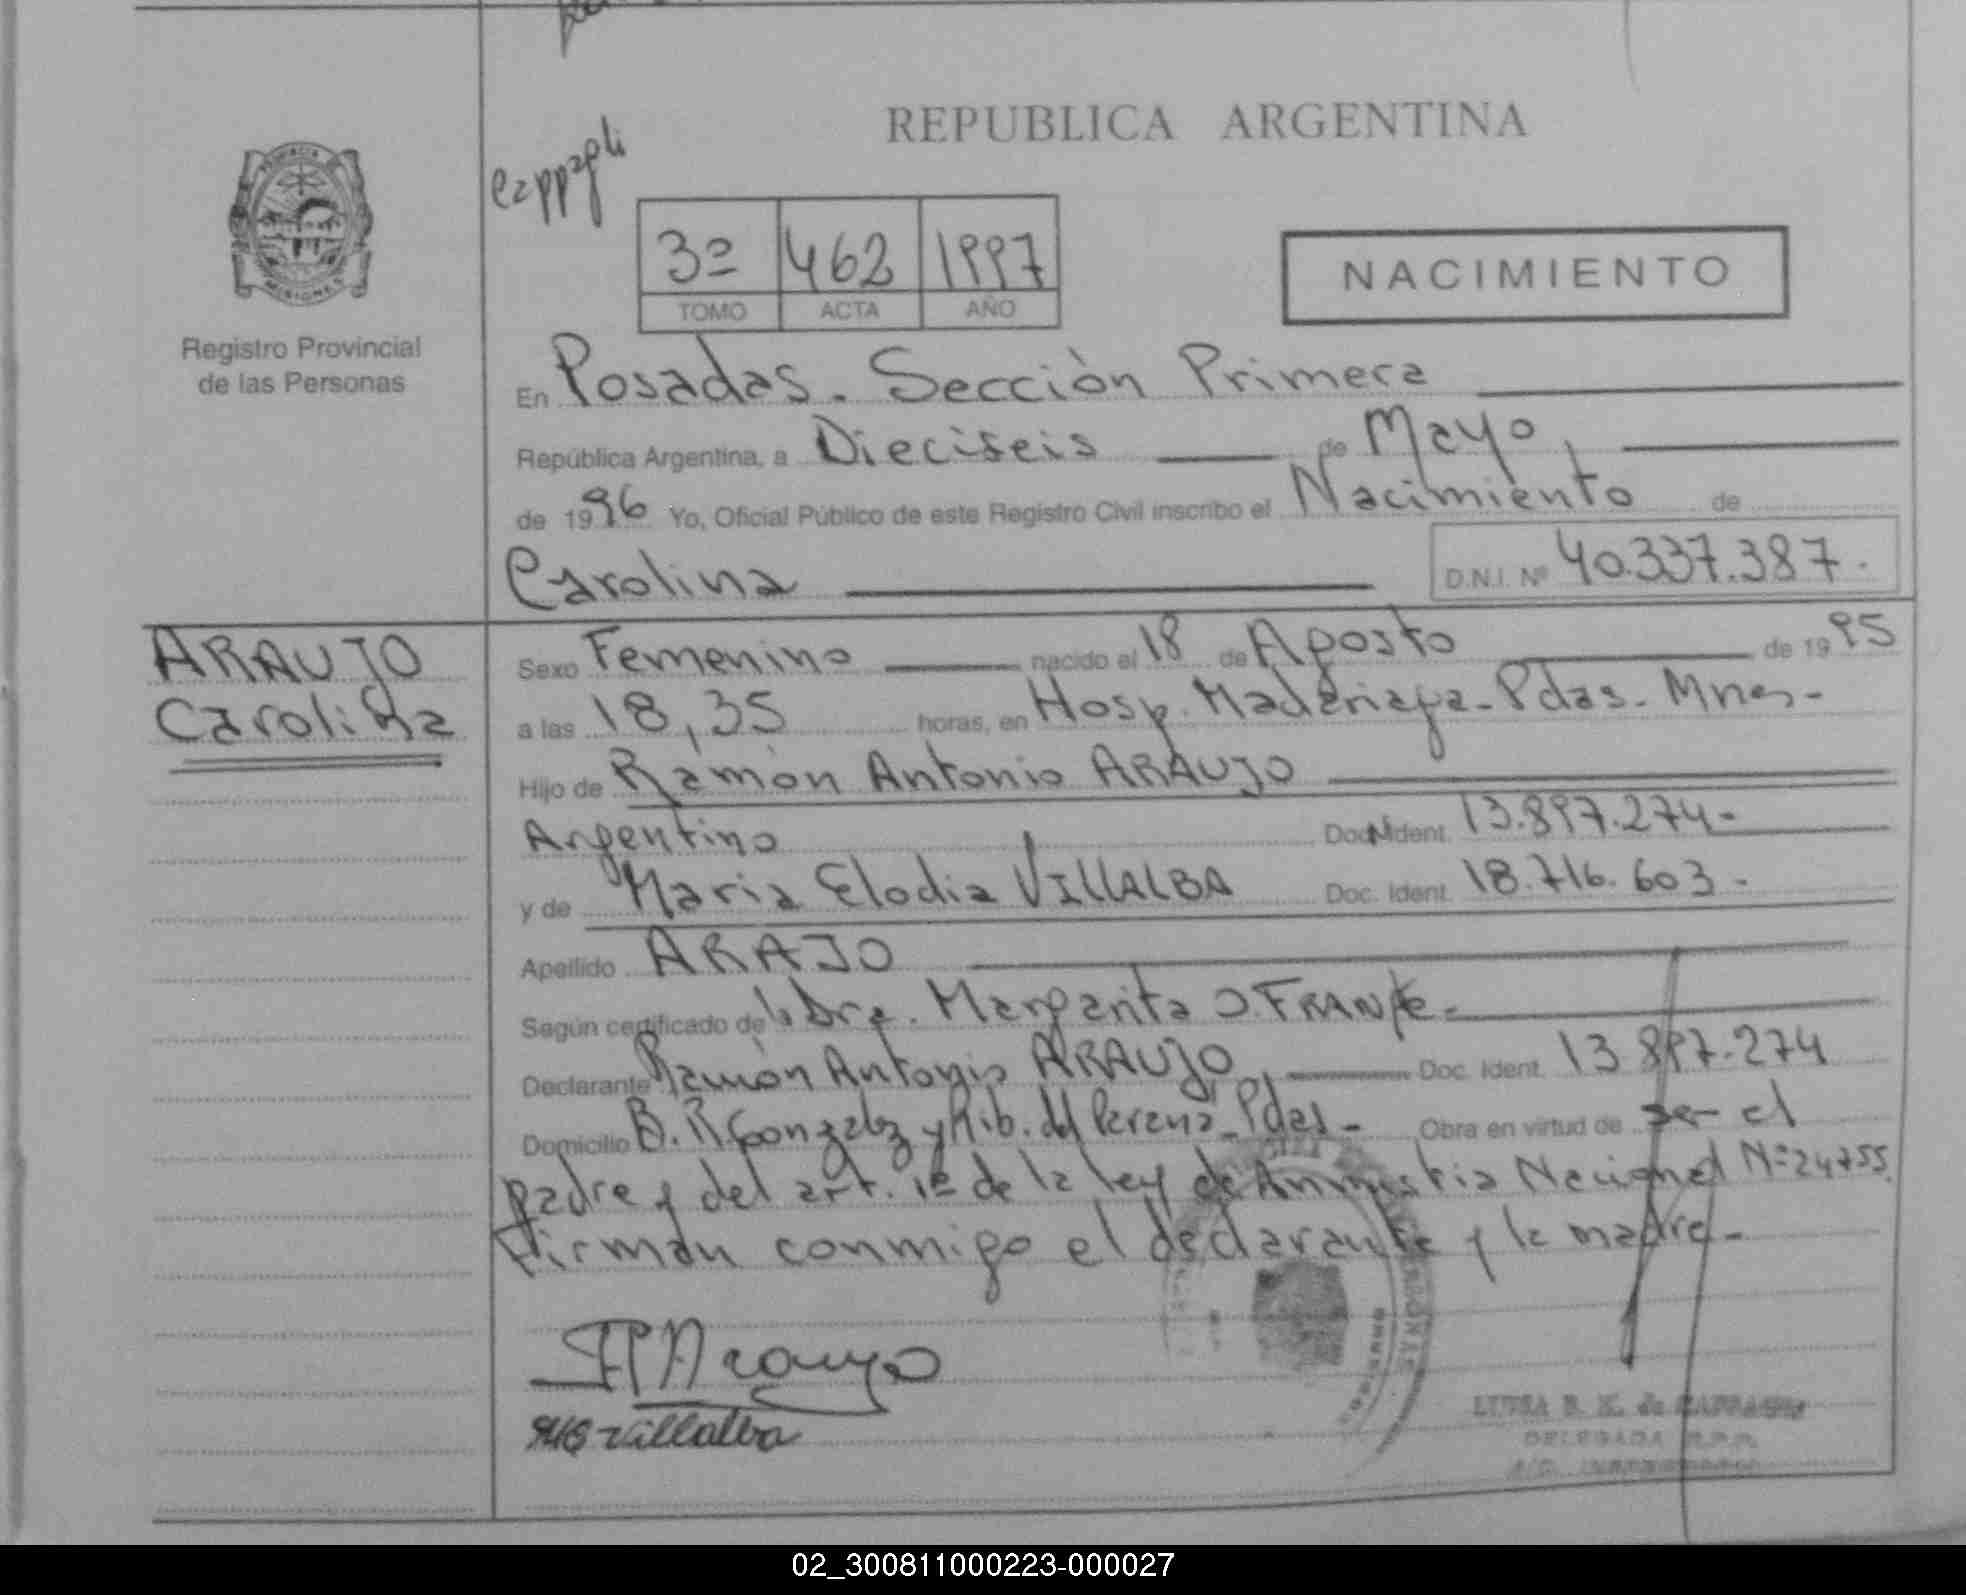 REPUBLICA ARGENTINA
PROVINCIA
MISIONES
Registro Provincial
de las Personas
3º 462 1997
TOMO ACTA AÑO
NACIMIENTO
En Posadas. Sección Primera
República Argentina, a Dieciseis de Mayo,
de 1996 Yo, Oficial Público de este Registro Civil inscribo el Nacimiento de
Carolina D.N.I. Nº 40.337.387.
ARAUJO
Carolina
Sexo Femenino nacido el 18 de Agosto de 1995
a las 18,35 horas, en Hosp. Madariaga - Pdas. Mnes -
Hijo de Ramón Antonio ARAUJO
Argentino Doc. Ident. 13.897.274-
y de Maria Elodia VILLALBA Doc. Ident. 18.716.603-
Apellido ARAJO
Según certificado de la Dra. Margarita O.
Declarante Ramón Antonio ARAUJO, Doc. Ident. 13.897.274
Domicilio B. R. Gonzalez y Rib. del Parana - Pdas - Obra en virtud de ser el
padre y del art. 1º de la ley de Amnistia Nacional Nº 24755.
Firman conmigo el declarante y la madre-
Araujo
Villalba
LUISA B. K. de
DELEGADA R.P.P.
02_300811000223-000027